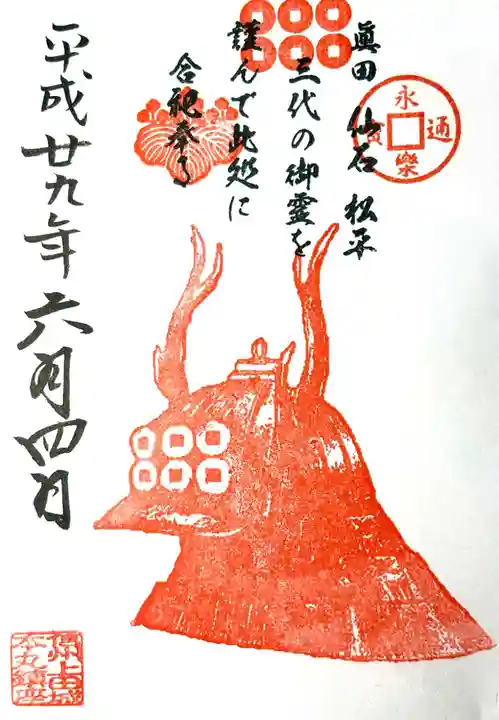 眞田 仙石 松平
三代の御霊を
謹んで此処に
合祀奉る
永樂通寳
平成廿九年六月四日